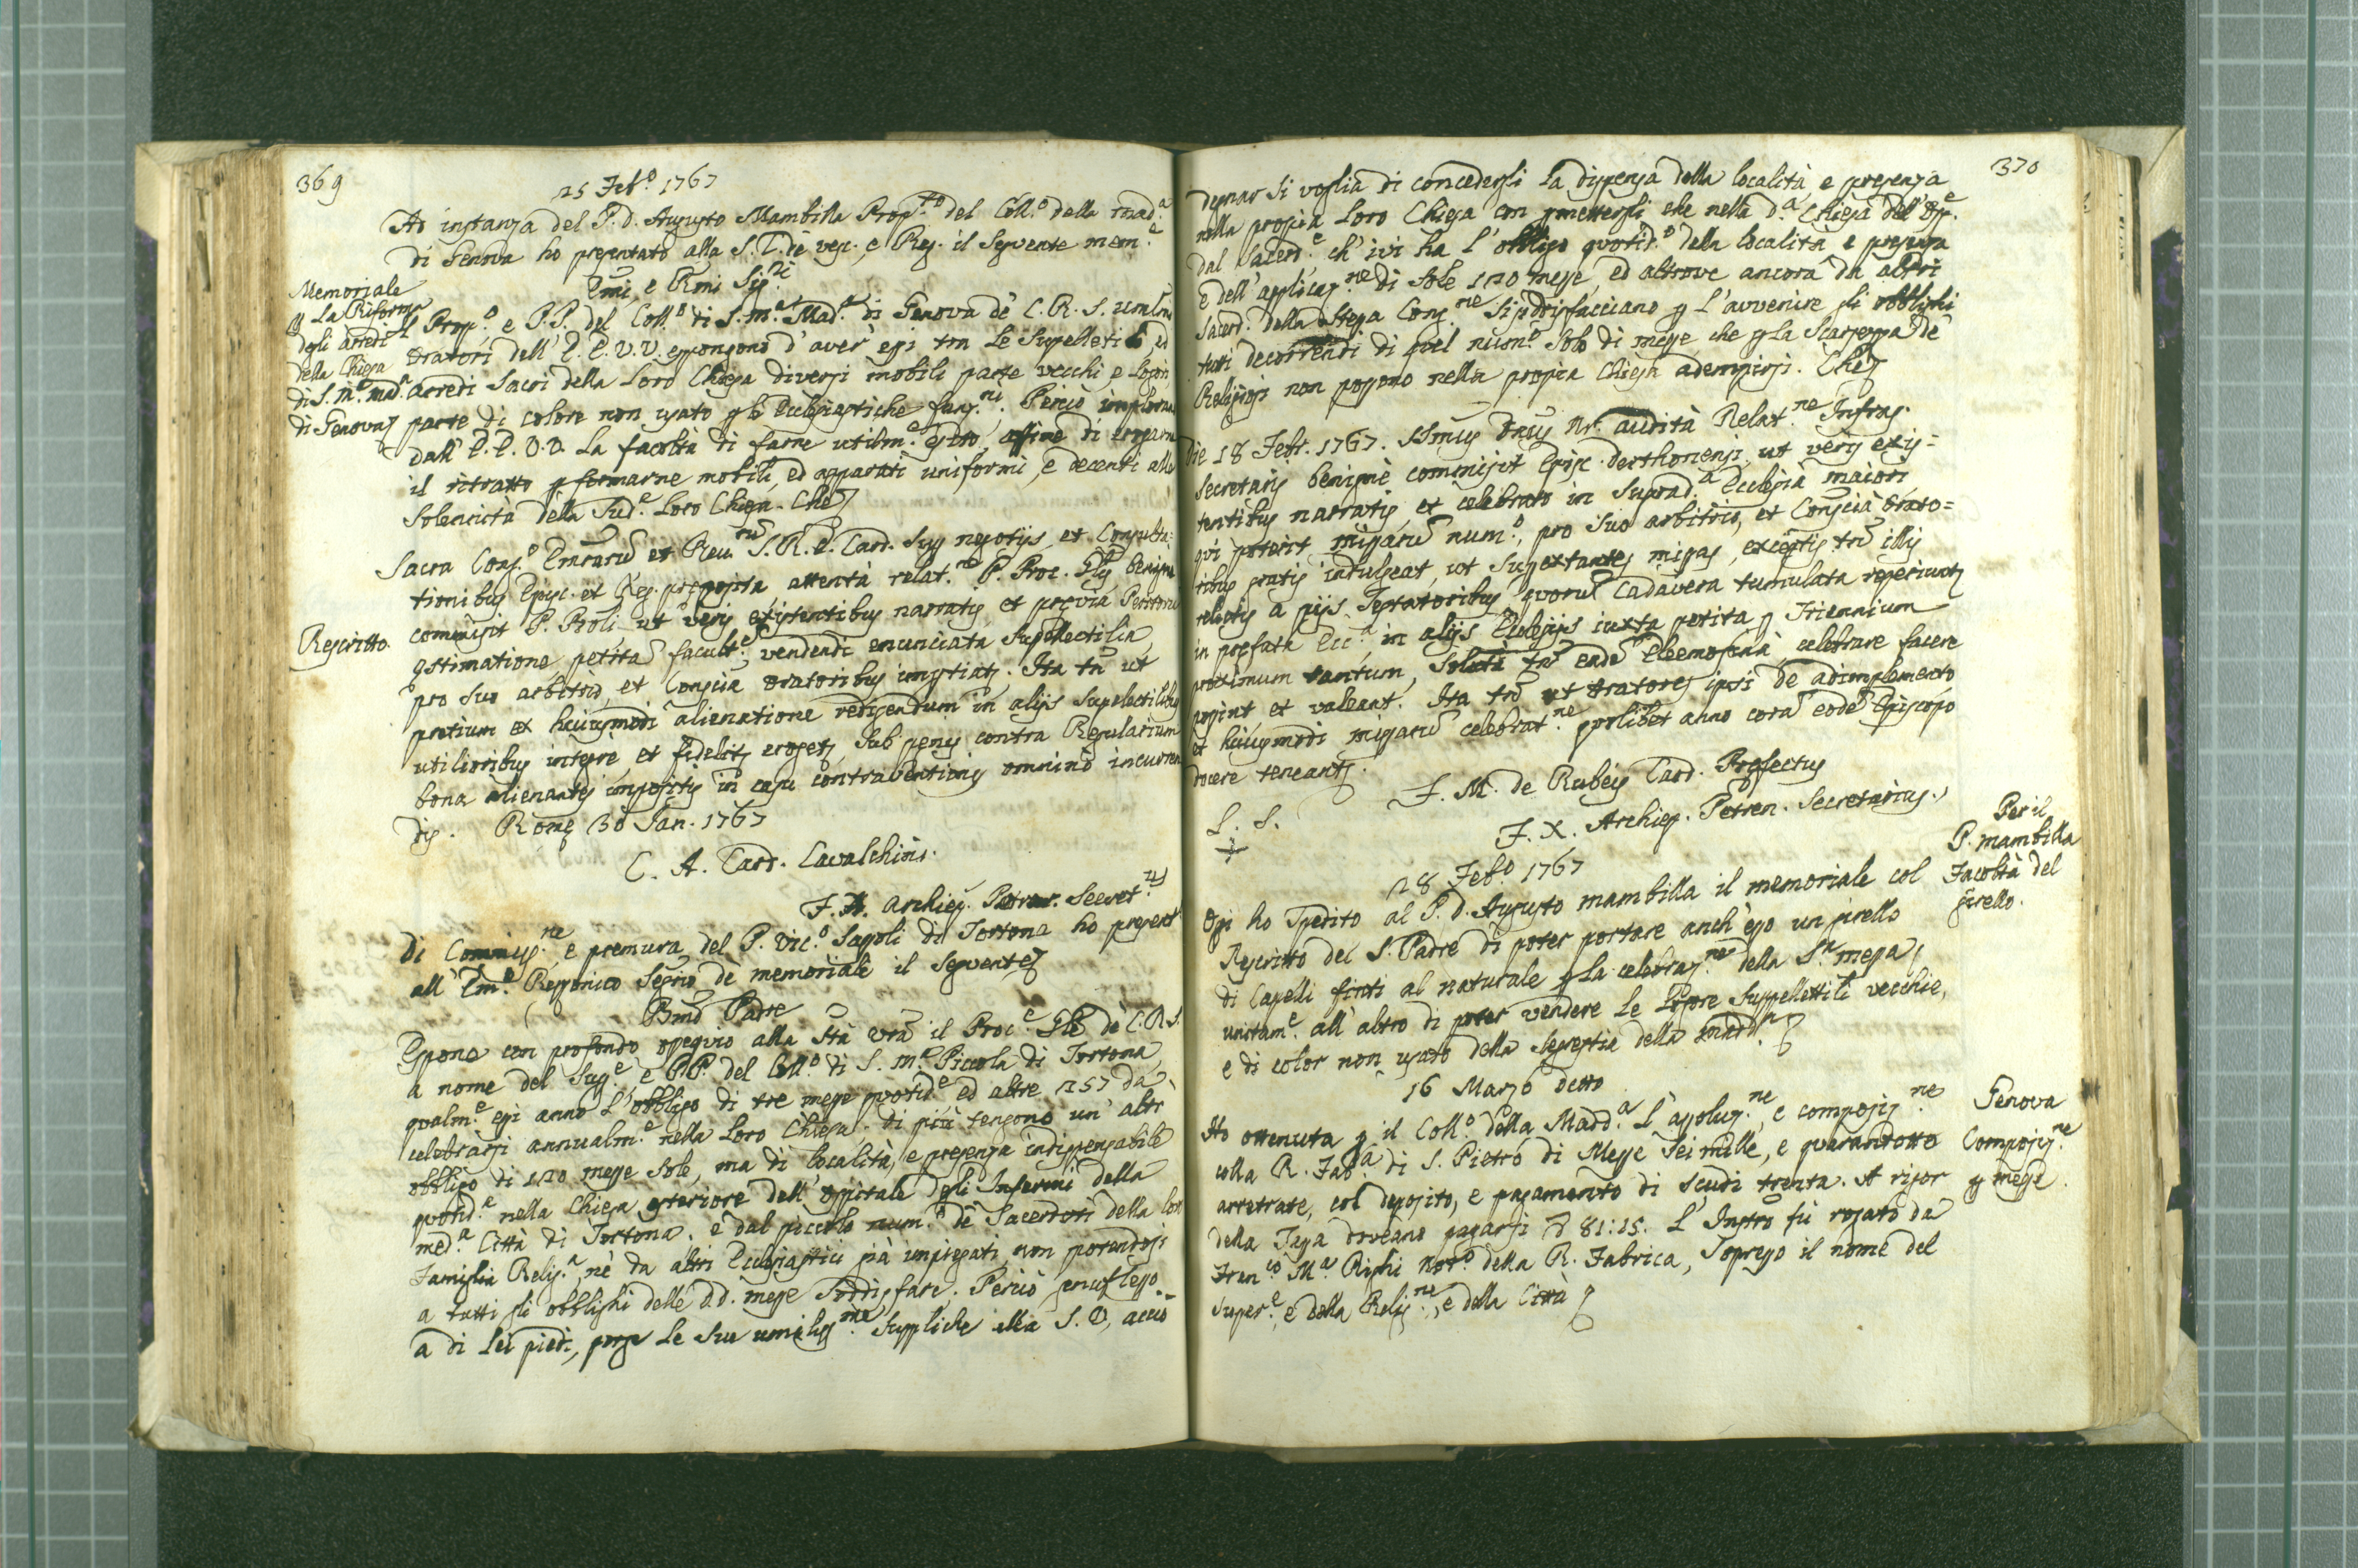 369
25 Feb.o 1767
Ad instanza del P. d. Augusto Mambilla Prop.to del Coll.o della Mad.a
di Genova ho presentato alla S. C. de Vesc. e Reg. il seguente mem.e
Emi, e Rmi Sig.ri
Memoriale
p La Riforma
degli arredi
della Chiesa
di S. M.a Mad.a
di Genova
Il Prop.o e P.P. del Coll.o di S. M.a Mad.a di Genova de C. R. S. umilmi
Oratori dell' E. E. V. V. espongono d'aver essi tra le Suppelletili ed
arredi Sacri della Loro Chiesa diversi mobili parte vecchi, e logori,
parte di colore non usato p le Ecclesiastiche funz.ni. Perciò implorano
dall' E. E. V. V. La facoltà di farne utilm.e esito, affine di erogarne
il ritratto p formarne mobili, ed apparati uniformi, e decenti alle
Solennità della Sud.a Loro Chiesa. Che
Rescritto.
Sacra Cong.o Emorum et Reu.rum S. R. E. Card. Sup negotijs, et Consulta=
tionibus Episc. et Reg. preposita, attentà relat.ne P. Proc. Glis benigne
commisit P. Proli ut veris existentibus narratis, et prævia Peritorum
æstimatione petitam facult.em vendendi enunciata Supellectilia,
pro suo arbitrio, et Conscia Oratoribus impertiat. Ita tn ut
pretium ex huiusmodi alienatione redigendum in alijs Supelectilibus
utilioribus integre, et fidelit erogetz, Sub penis contra Regularium
bona alienantes impositis in casu contraventionis omnino incurren
dis. Romæ 30 Jan. 1767
C. A. Card. Cavalchini.
F. X. Archiep. Petren. Secret.us
Di Commiss.ne, e premura del P. Vic.o Sapoli di Tortona ho present
all' Em.o Rezzonico Segrio de memoriale il Seguente
Bmo Padre
Espone con profondo ossequio alla Stà Vra il Proc.e Gle de C. R. S.
a nome del Sup.e, e PP. del Coll.o di S. M.a Piccola di Tortona,
qualm.e essi anno L'obbligo di tre messe quotid.e ed altre 257 da
celebrarsi annualm.e nella Loro Chiesa; di più tengono un' altr
obbligo di 120 messe Sole, ma di località, e presenza indispensabile
quotid.a nella Chiesa esteriore dell' Ospitale degli Infermi della
med.a Città di Tortona. e dal piccolo num.o de Sacerdoti della lor
Famiglia Relig.a, nè da altri Ecclesiastici già impiegati, non potendosi
a tutti gli obblighi delle d.d. messe Soddisfare. Perciò genuflesso
a di Lei piedi, porge Le Sue umiliss.me Suppliche alla S. V., acciò
370
degnar Si voglia di concedergli La dispensa della località, e presenza
nella propria Loro Chiesa con pmettergli che nella d.a Chiesa dell' Osp.e
dal Sacerd.e ch' ivi ha l'obbligo quotid.o della località e presenza
e dell' applicaz.ne di Sole 120 messe, ed altrove ancora da altri
Sacerd. della Stessa Cong.ne Si soddisfacciano p L'avvenire gli obblighi
tutti decorrendi di quel num.o Solo di messe, che p La Scarsezza de
Religiosi non possono nella propria Chiesa adempirsi. Che
Die 18 Febr. 1767. SSmus Dnus Nr. audità Relat.ne Infras.
Secretarij benignè commisit Episc. Derthonensi, ut veris exis=
tentibus narratis, et celebrato in Suprad.a Ecclesià maiori
qui poterit missarum num.o, pro Suo arbitrio, et Conscià Orato=
ribus gratis indulgeat, ut Superextantes missas, exceptis tn illis
relictis a pijs Testatoribus, quorum Cadavera tumulata reperiuntz
in prefata Ecc.a, in alijs Ecclesijs iuxta petita p Triennium
proximum tantum, Solutà tn eadem Eleemosinà, celebrare facere
possint et valeant. Ita tn ut Oratores ipsi de adimplemento
et huiusmodi missarum celebrat.ne quolibet anno coram eodem Episcopo
docere teneantz.
F. M. de Rubeis Card. Prefectus
L. S.
F. X. Archiep. Petren. Secretarius.
28 Feb.o 1767
Per il
P. Mambilla
Facoltà del
girello.
Oggi ho Spedito al P. d. Augusto Mambilla il memoriale col
Rescritto del S. Padre di poter portare anch' esso un girello
di Capelli finti al naturale p La celebraz.ne della S.a Messa,
unitam.e all' altro di poter vendere Le Logore Suppellettili vecchie,
e di color non usato della Segrestia della Madd.a
16 Marzo detto
Genova
Composiz.ne
p messe.
Ho ottenuta p il Coll.o della Madd.a L'assoluz.ne, e composiz.ne
colla R. Fab.a di S. Pietro di Messe Sei mille, e quarandotto
arretrate, col deposito, e pagamento di Scudi trenta. A rigor
della Tassa doveano pagarsi 81:15. L' Instro fù rogato da
Fran.co M.a Righi Not.o della R. Fabrica, Sopresso il nome del
Super.e, e della Relig.ne, e della Città